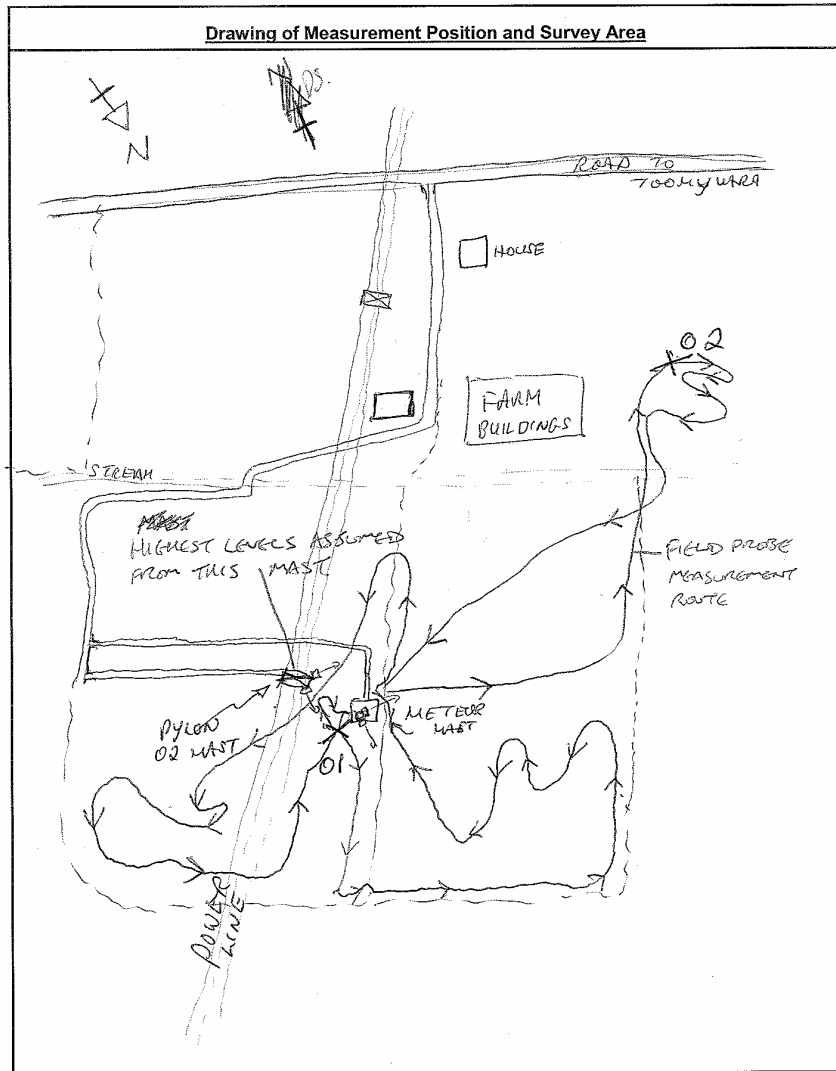 Drawing of Measurement Position and Survey Area
DS.
N
ROAD TO
TOOMYVARA
HOUSE
02
FARM
BUILDINGS
STREAM
HIGHEST LEVELS ASSUMED
FROM THIS MAST
FIELD PROBE
MEASUREMENT
ROUTE
PYLON
02 MAST
METEOR
MAST
01
POWER
LINE